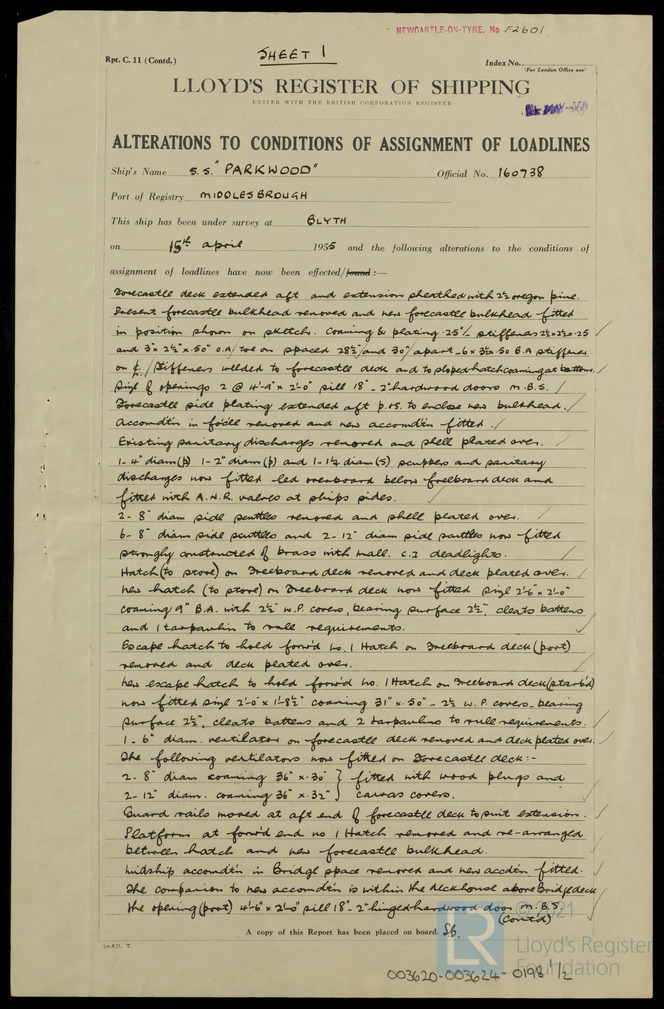 NEWCASTLE-ON-TYNE. No F2601
SHEET 1
Rpt. C. 11 (Contd.)
Index No.
(For London Office use)
LLOYD'S REGISTER OF SHIPPING
UNITED WITH THE BRITISH CORPORATION REGISTER
ALTERATIONS TO CONDITIONS OF ASSIGNMENT OF LOADLINES
Ship's Name S.S. "PARKWOOD" Official No. 160738
Port of Registry MIDDLESBROUGH
This ship has been under survey at BLYTH
on 15th April 1955 and the following alterations to the conditions of
assignment of loadlines have now been effected/found :—
Forecastle deck extended aft and extension sheathed with 2½ oregon pine.
Present forecastle bulkhead removed and new forecastle bulkhead fitted
in position shown on sketch. Coaming & plating .25"/- stiffeners 2½ x 2½ x .25
and 3" x 2½" x .50" O.A/ toe on spaced 28½" and 30" apart - 6 x 3½ x .50 B.A stiffener
on ȼ. / Stiffeners welded to forecastle deck and to sloped hatch coaming at bottom.
Size of openings 2 @ 4'-9" x 2'-0" sill 18" - 2" hardwood doors M.B.S.
Forecastle side plating extended aft p.&s. to enclose new bulkhead.
Accomdtn in fo'cle removed and new accomdtn fitted.
Existing sanitary discharges removed and shell plated over.
1 - 4" diam (p) 1 - 2" diam (p) and 1 - 1½ diam (s) scuppers and sanitary
discharges now fitted led overboard below freeboard deck and
fitted with A.N.R. valves at ships sides.
2 - 8" diam side scuttles removed and shell plated over.
6 - 8" diam side scuttles and 2 - 12" diam side scuttles now fitted
strongly constructed of brass with mall. C.I deadlights.
Hatch (to store) on Freeboard deck removed and deck plated over.
New hatch (to store) on Freeboard deck now fitted size 2'-6" x 2'-0"
coaming 9" B.A. with 2½" W.P. covers, bearing surface 2½", cleats battens
and 1 tarpaulin to rule requirements.
Escape hatch to hold forw'd No. 1 Hatch on Freeboard deck (port)
removed and deck plated over.
New escape hatch to hold forw'd No. 1 Hatch on Freeboard deck (starb'd)
now fitted size 2'-0" x 1'-8½" coaming 31" x .50" - 2½ W.P. covers - bearing
surface 2½", cleats battens and 2 tarpaulins to rule requirements.
1 - 6" diam. ventilator on forecastle deck removed and deck plated over.
The following ventilators now fitted on Forecastle deck :-
2 - 8" diam coaming 36" x .30" } fitted with wood plugs and
2 - 12" diam. coaming 36" x .32" } canvas covers.
Guard rails moved at aft end of forecastle deck to suit extension.
Platform at forw'd end No 1 Hatch removed and re-arranged
between hatch and new forecastle bulkhead.
Midship accomdtn in Bridge space removed and new accdtn fitted.
The companion to new accomdtn is within the deckhouse above Bridge deck
the opening (port) 4'-6" x 2'-0" sill 18" - 2" hinged hardwood door M.B.S.
(Cont'd)
A copy of this Report has been placed on board.
© 2021
LR
Lloyd's Register
Foundation
003620-003624-0198 1/2